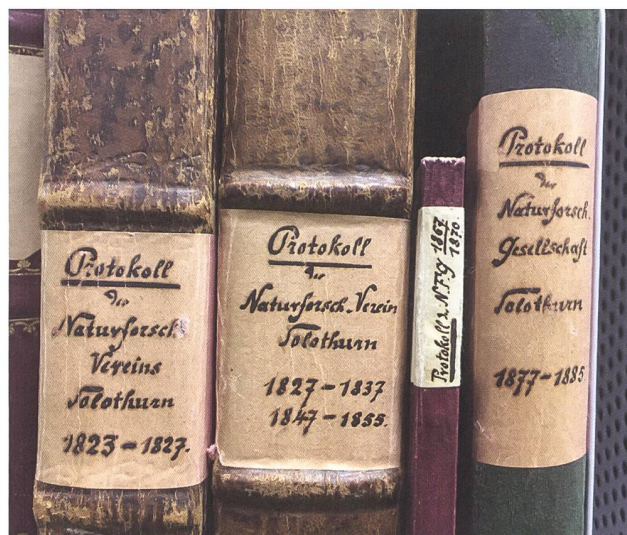 Protokoll
des
Naturforsch.
Vereins
Solothurn
1823-1827.
Protokoll
des
Naturforsch. Verein
Solothurn
1827-1837
1847-1855.
Protokoll d. NFG 1867
1870.
Protokoll
der
Naturforsch.
Gesellschaft
Solothurn
1877-1885